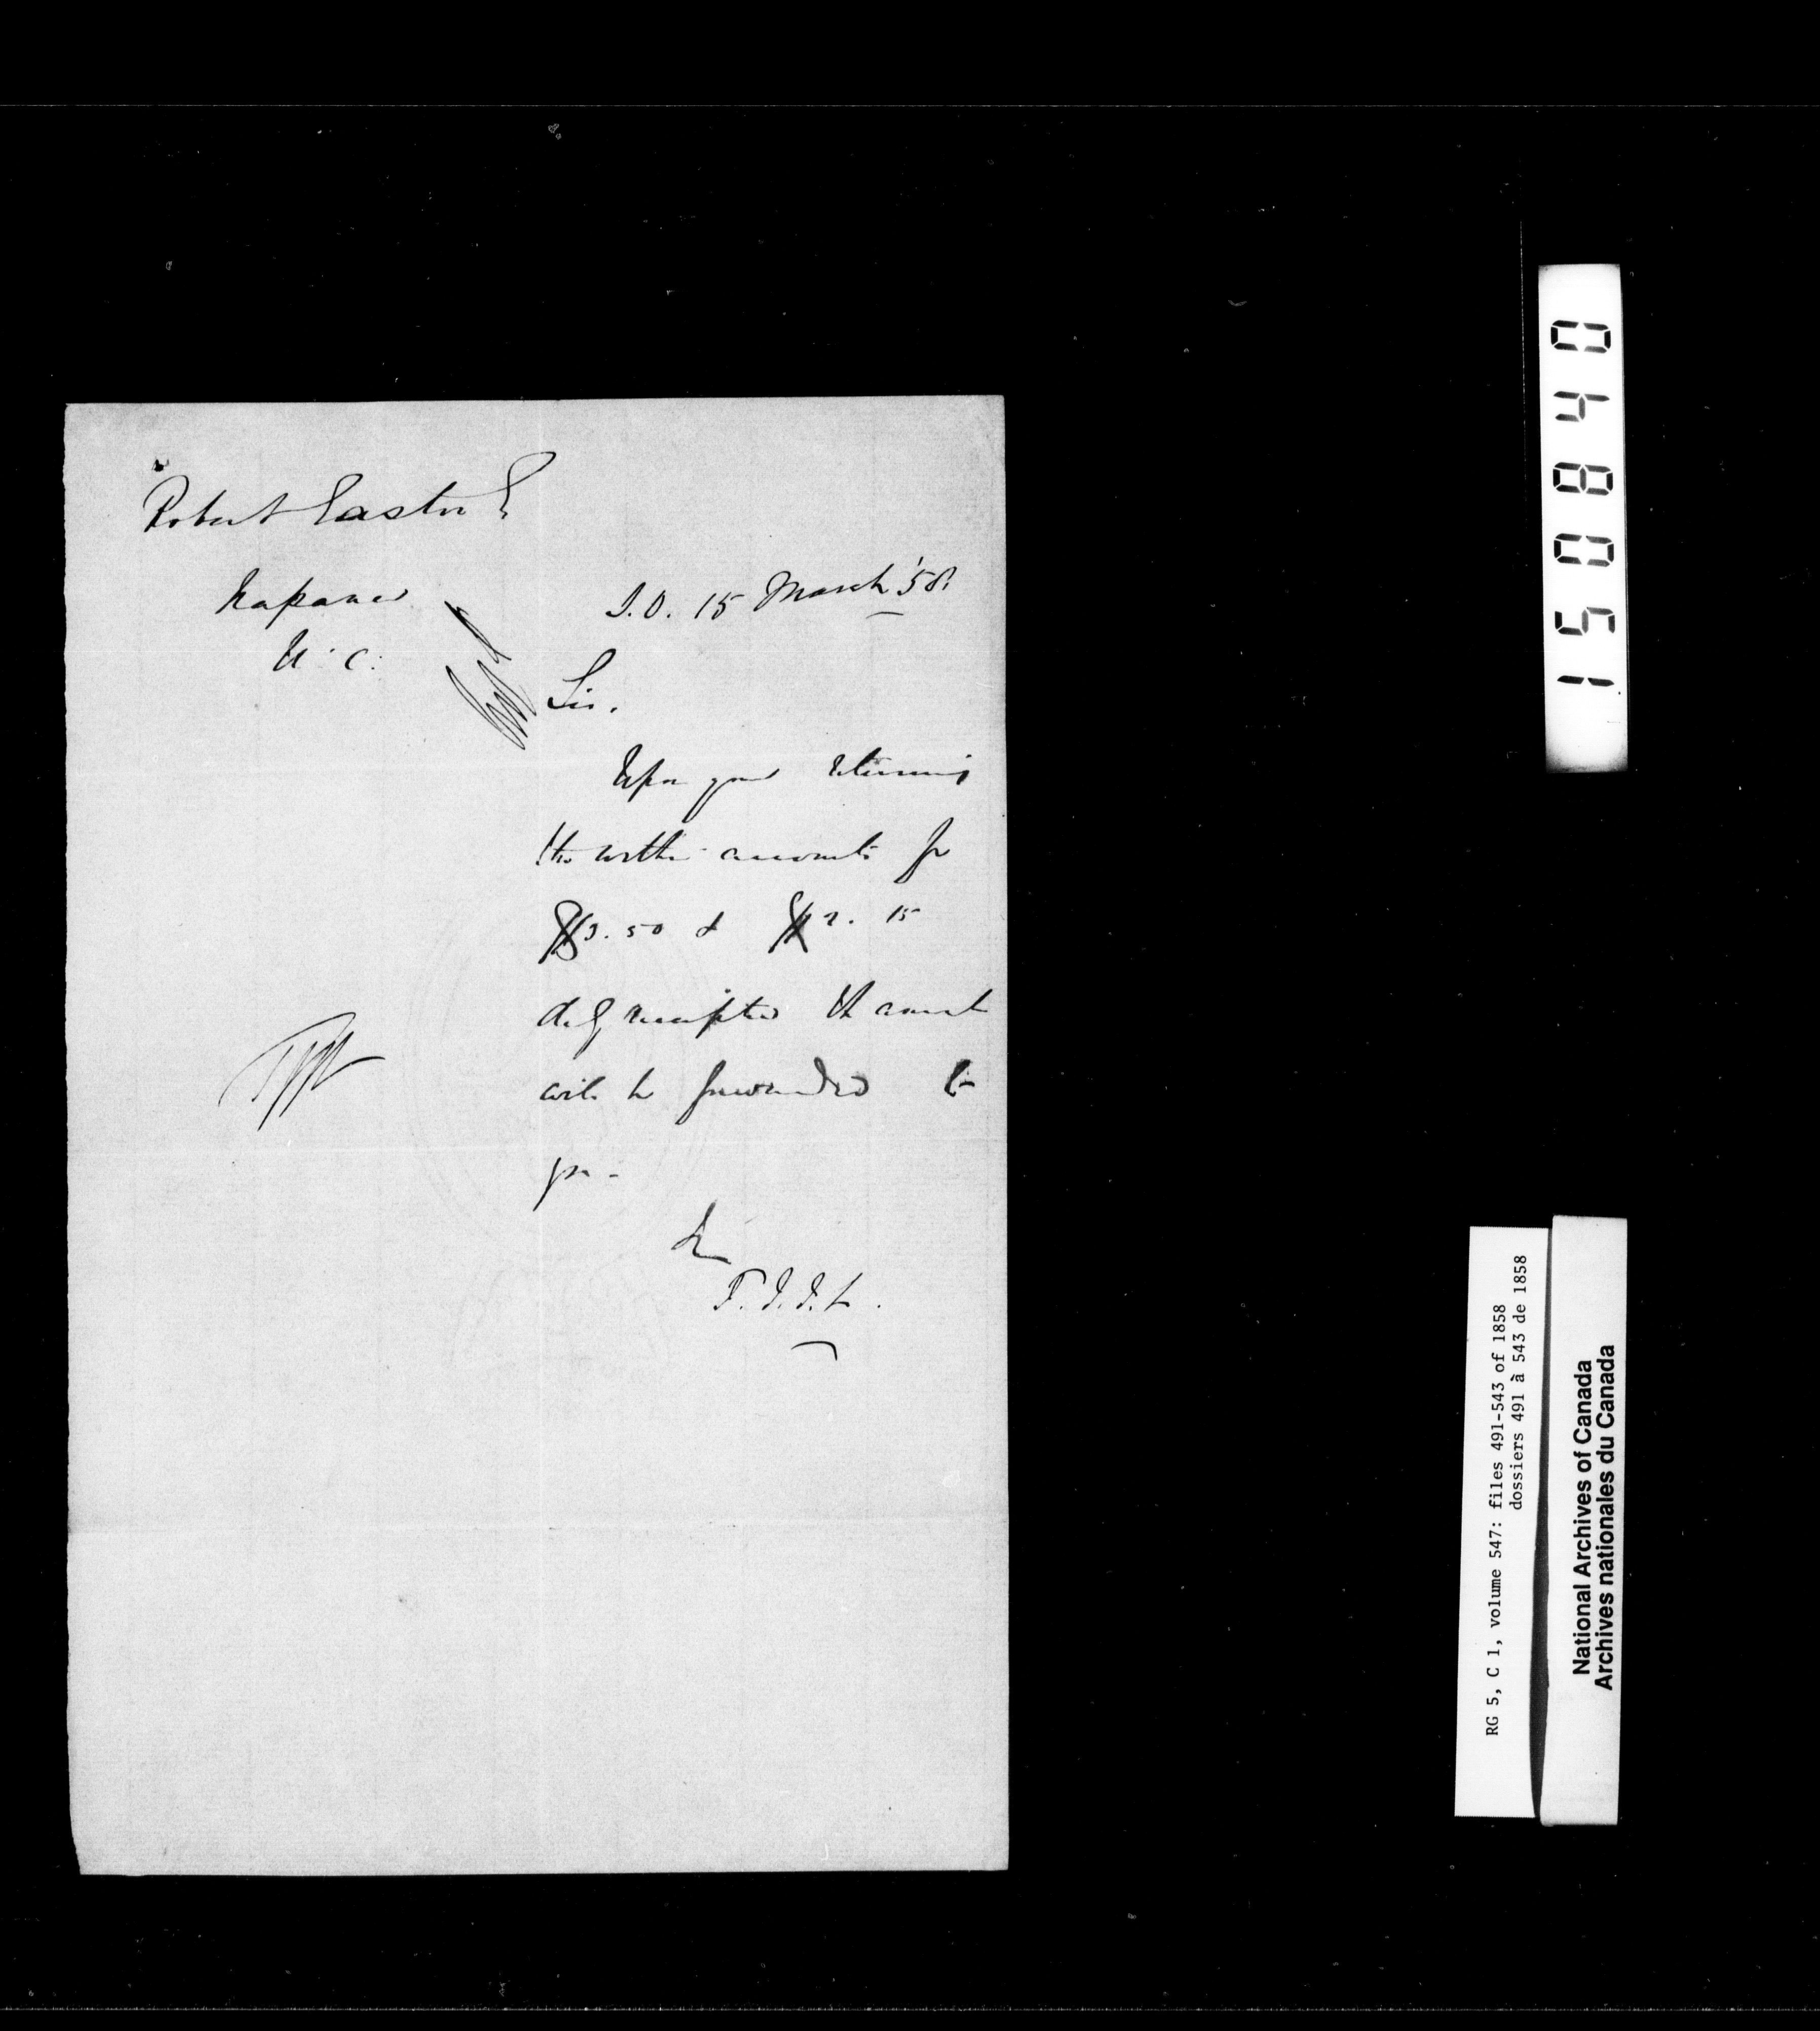 Robert Easton E
Napanee
U. C.
S.O. 15 March '58
Sir.
Upon your returning
the within accounts for
$3.50 & $2. 15
duly receipted the amount
will be forwarded to
you -
150840
RG 5, C 1, volume 547: files 491-543 of 1858
dossiers 491 à 543 de 1858
National Archives of Canada
Archives nationales du Canada